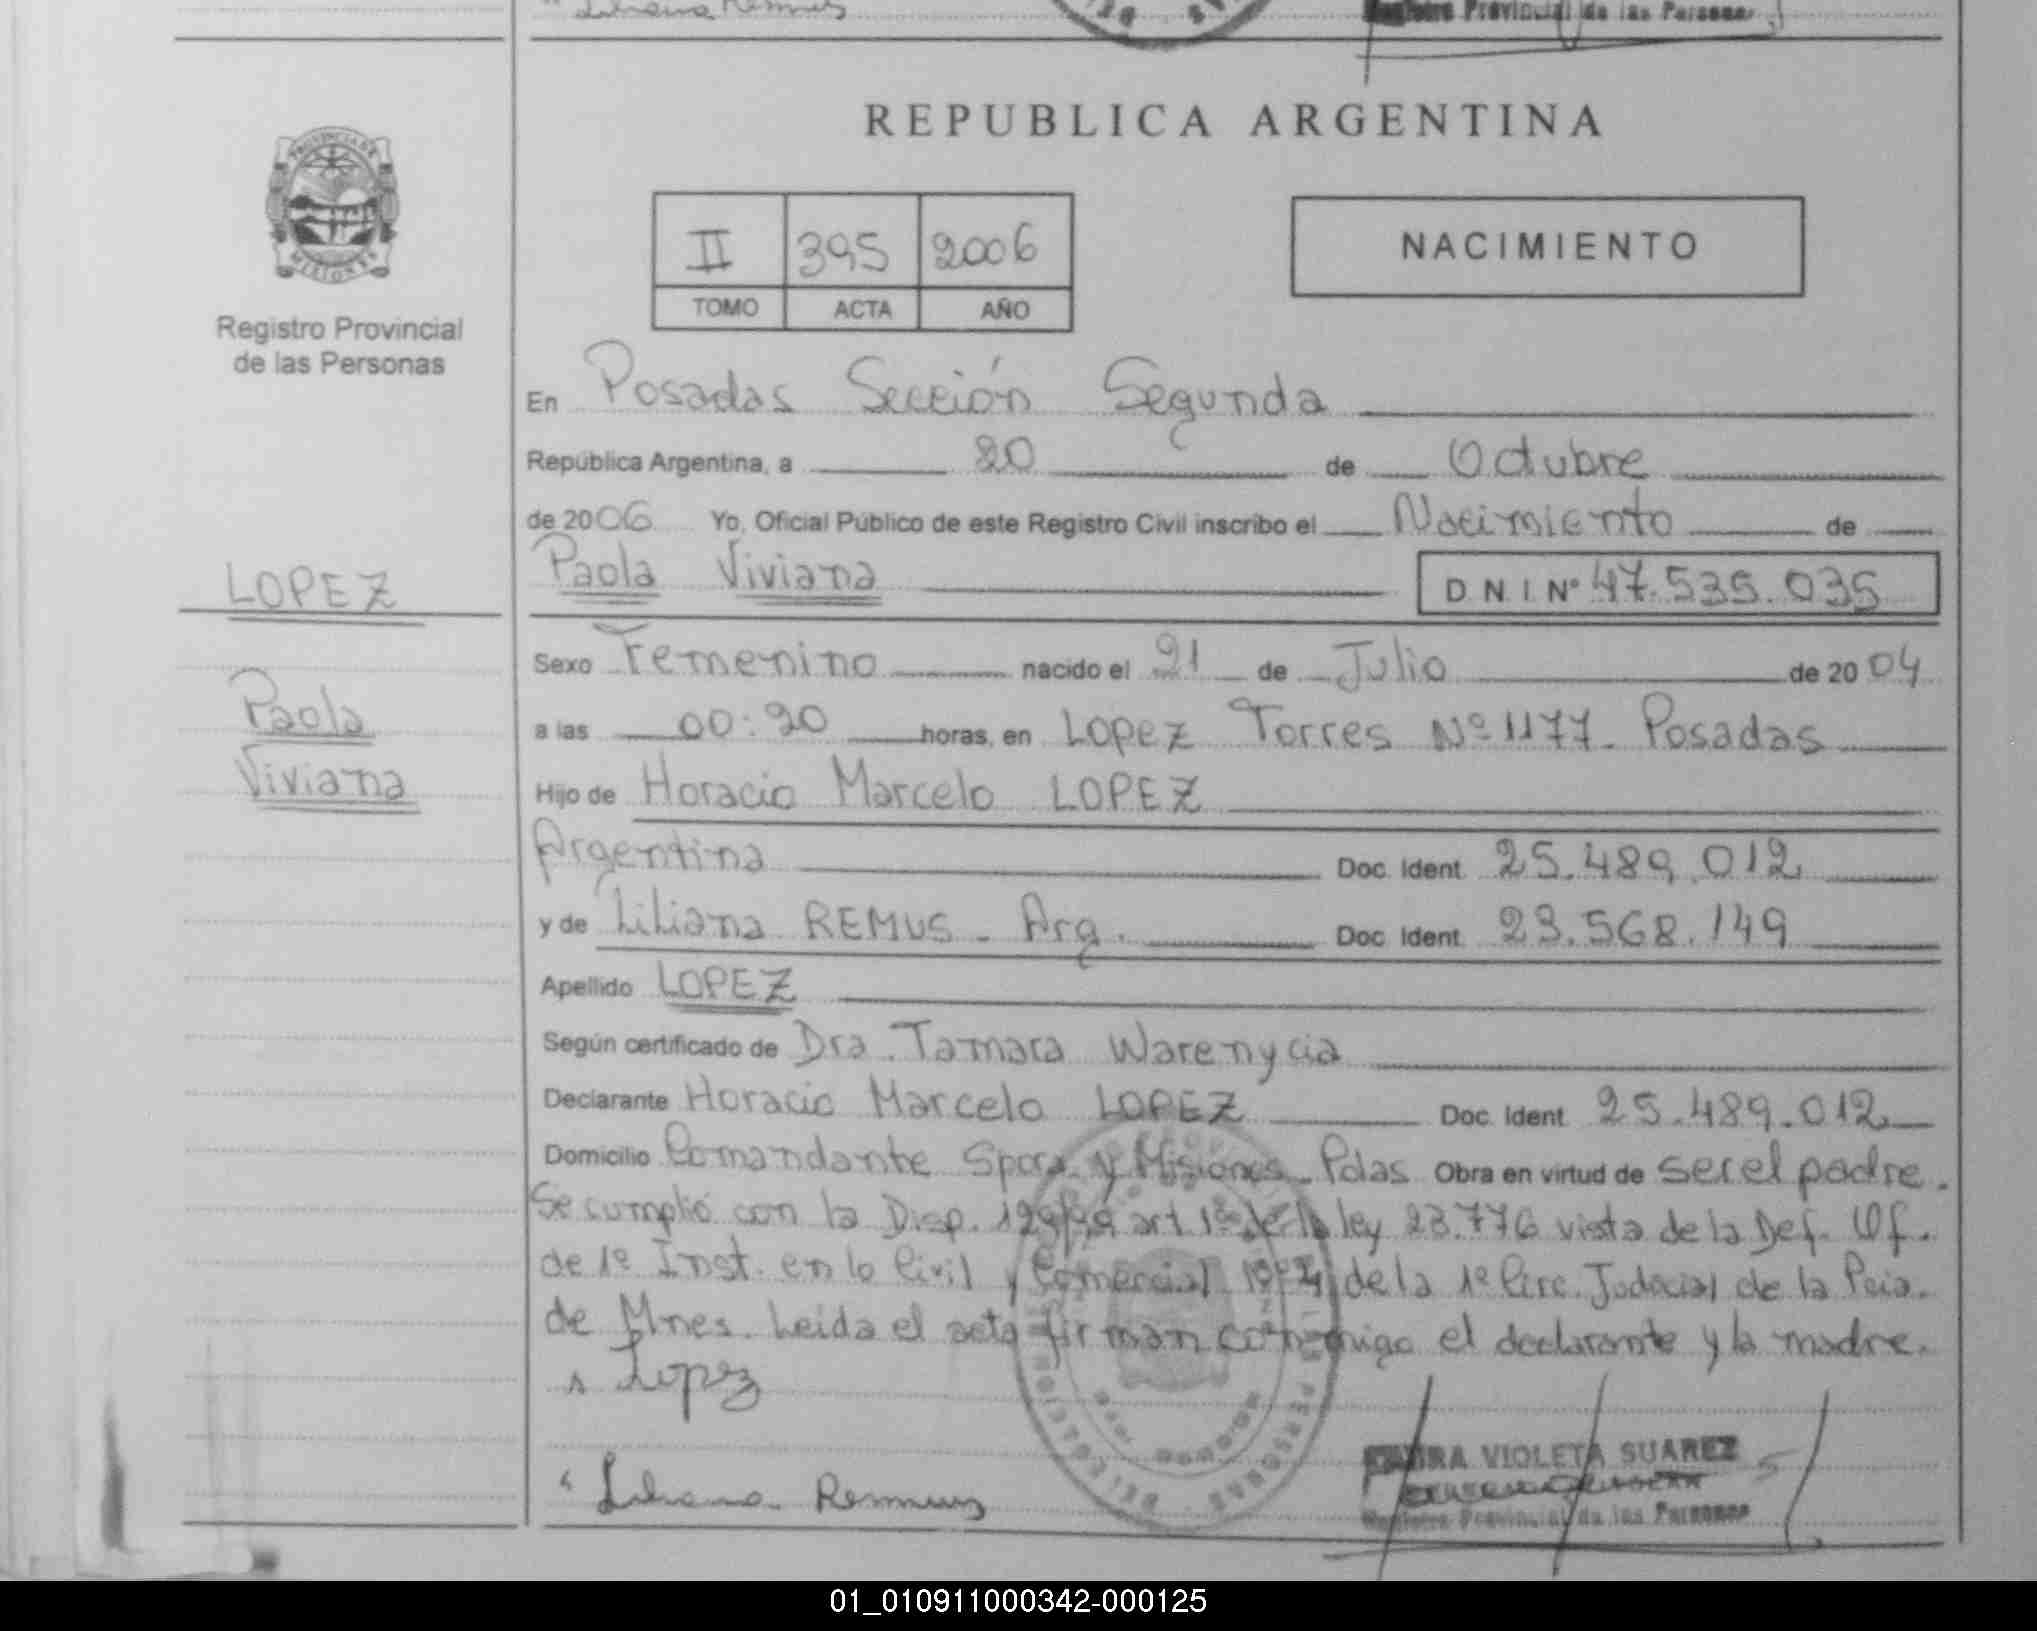 Liliana Remus
Registro Provincial de las Personas
REPUBLICA ARGENTINA
PROVINCIA DE
MISIONES
Registro Provincial
de las Personas
II 395 2006
TOMO ACTA AÑO
NACIMIENTO
En Posadas Sección Segunda
República Argentina, a 20 de Octubre
de 2006 Yo, Oficial Público de este Registro Civil inscribo el Nacimiento de
Paola Viviana D.N.I. Nº 47.535.035
LOPEZ
Paola
Viviana
Sexo Femenino nacido el 21 de Julio de 2004
a las 00:20 horas, en Lopez Torres Nº 1177. Posadas
Hijo de Horacio Marcelo LOPEZ
Argentina Doc. Ident. 25.489.012
y de Liliana REMUS - Arg. Doc. Ident. 23.568.149
Apellido LOPEZ
Según certificado de Dra. Tamara Warenycia
Declarante Horacio Marcelo LOPEZ Doc. Ident. 25.489.012
Domicilio Comandante y Misiones - Pdas Obra en virtud de ser el padre.
Se cumplió con la Disp. art 1º de la ley 23.776 vista de la Def. Of.
de 1º Inst. en lo Civil y Comercial de la 1º Circ. Judacial de la Pcia.
de Mnes. Leida el acta firman conmigo el declarante y la madre.
Lopez
Liliana Remus
VIOLETA SUAREZ
Registro Provincial de las Personas
01_010911000342-000125